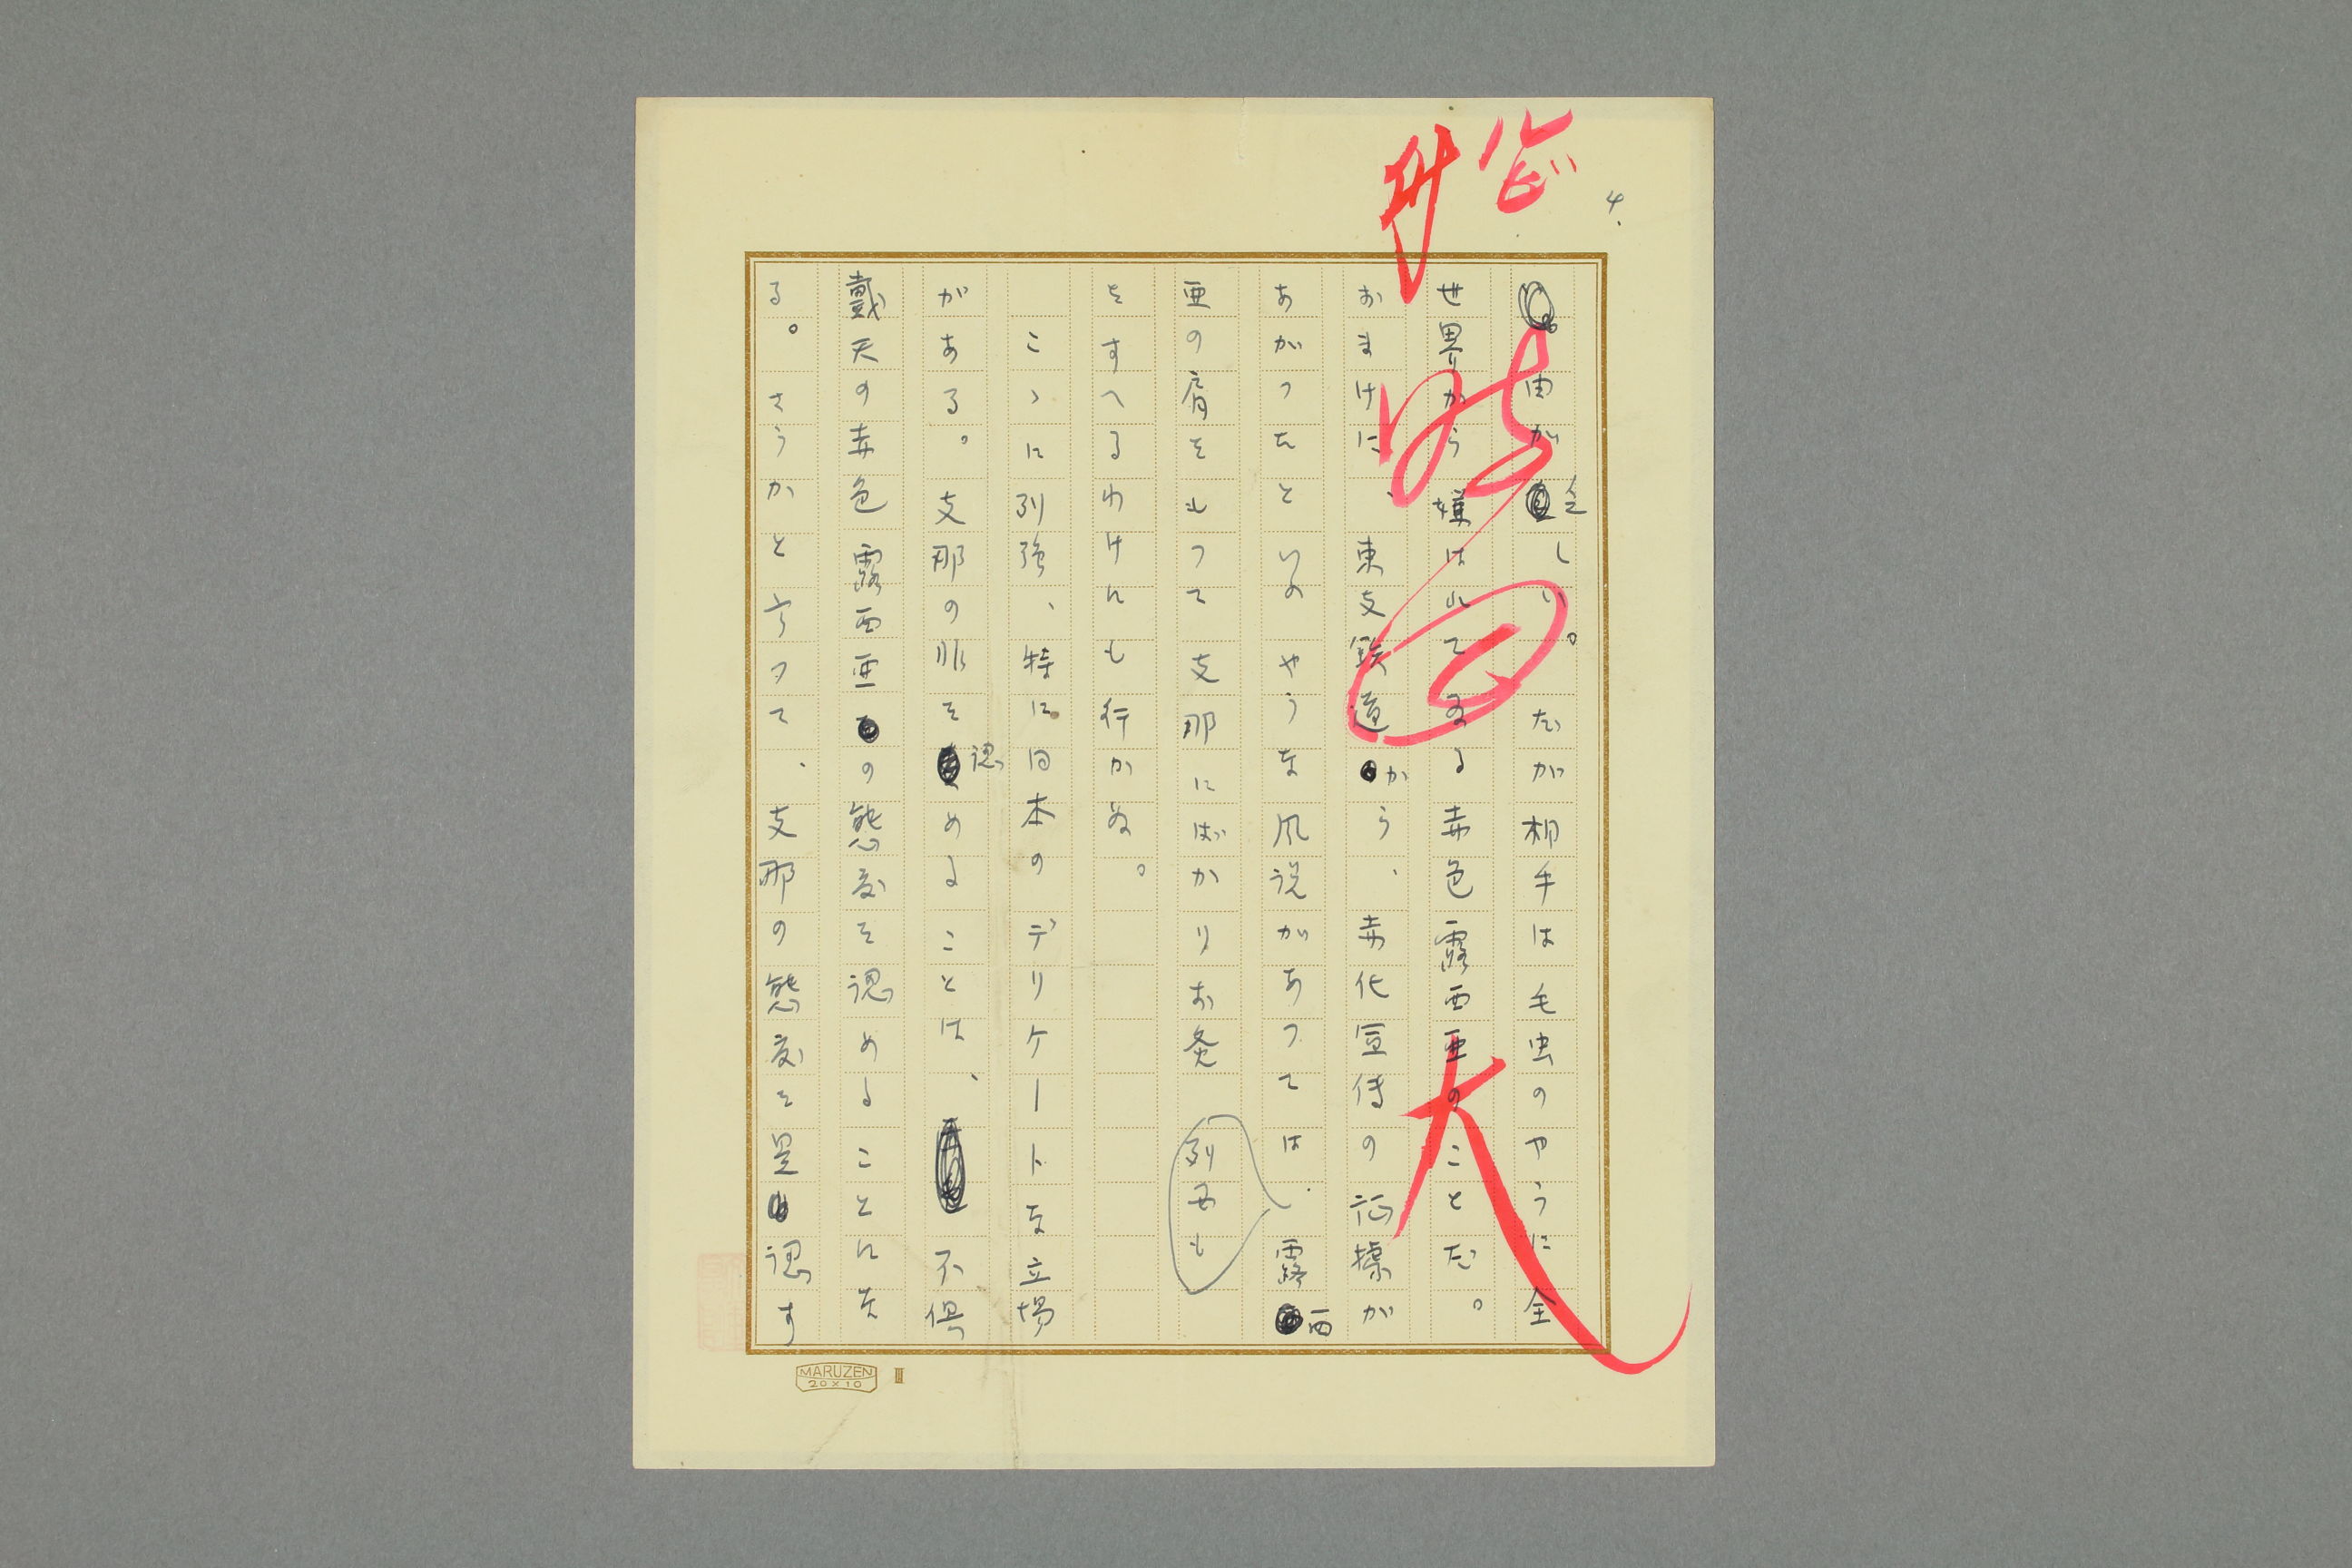 4.
由が全しい。だが相手は毛虫のやうに全
世界から嫌はれてゐる赤色露西亜のことだ。
おまけに、東支鉄道から、赤化宣伝の証據が
あがつたといふやうな風説があつては、露西
亜の肩をもつて支那にばかりお灸
列国も
をすへるわけにも行かぬ。
こゝに列強、特に日本のデリケートな立場
がある。支那の非を認めることは、不倶
戴天の赤色露西亜の態度を認めることにな
る。さうかと言つて、支那の態度を是認す
大
MARUZEN
20×10